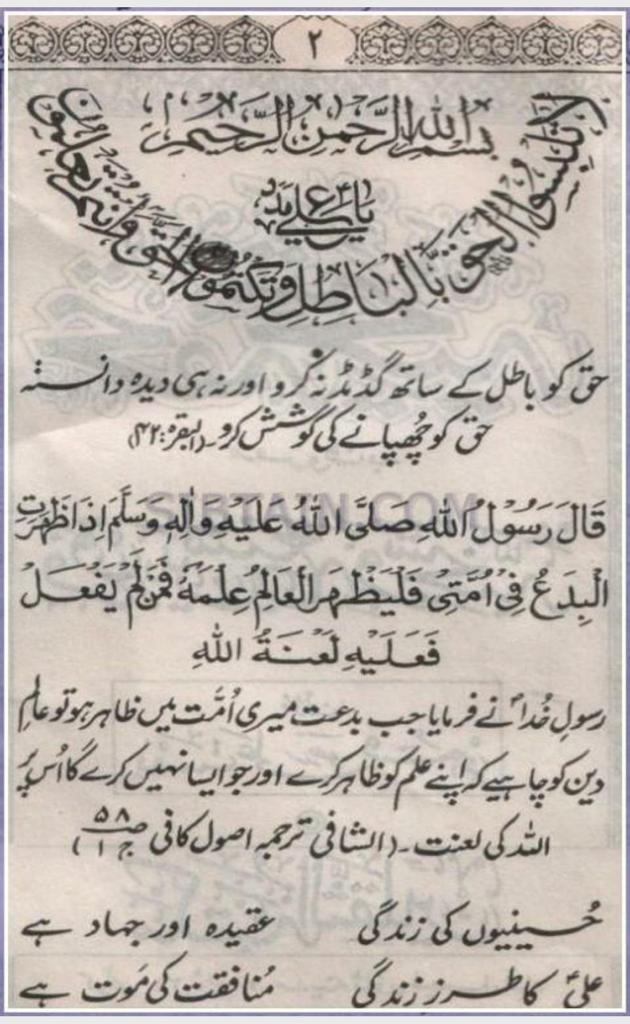 ۲
بسم الله الرحمن الرحيم
یا علی مدد
لا تلبسوا الحق بالباطل وتكتموا الحق وانتم تعلمون
حق کو باطل کے ساتھ گڈمڈ نہ کرو اور نہ ہی دیدہ دانستہ
حق کو چُھپانے کی کوشش کرو۔ (البقرہ:۴۲)
SIBTAIN.COM
قَالَ رَسُوْلُ اللهِ صَلَّى اللهُ عَلَيْهِ وَاٰلِهٖ وَسَلَّمَ اِذَا ظَهَرَتِ
الْبِدَعُ فِيْ اُمَّتِيْ فَلْيَظْهَرِ الْعَالِمُ عِلْمَهٗ فَمَنْ لَّمْ يَفْعَلْ
فَعَلَيْهِ لَعْنَةُ اللهِ
رسولِ خُداؐ نے فرمایا جب بدعت میری اُمّت میں ظاہر ہو تو عالمِ
دین کو چاہیے کہ اپنے علم کو ظاہر کرے اور جو ایسا نہیں کرے گا اُس پر
اللہ کی لعنت۔ (الشافی ترجمہ اصول کافی ج ۱ ص ۵۸)
حُسینیوں کی زندگی عقیدہ اور جہاد ہے
علیؑ کا طرز زندگی مُنافقت کی مَوت ہے